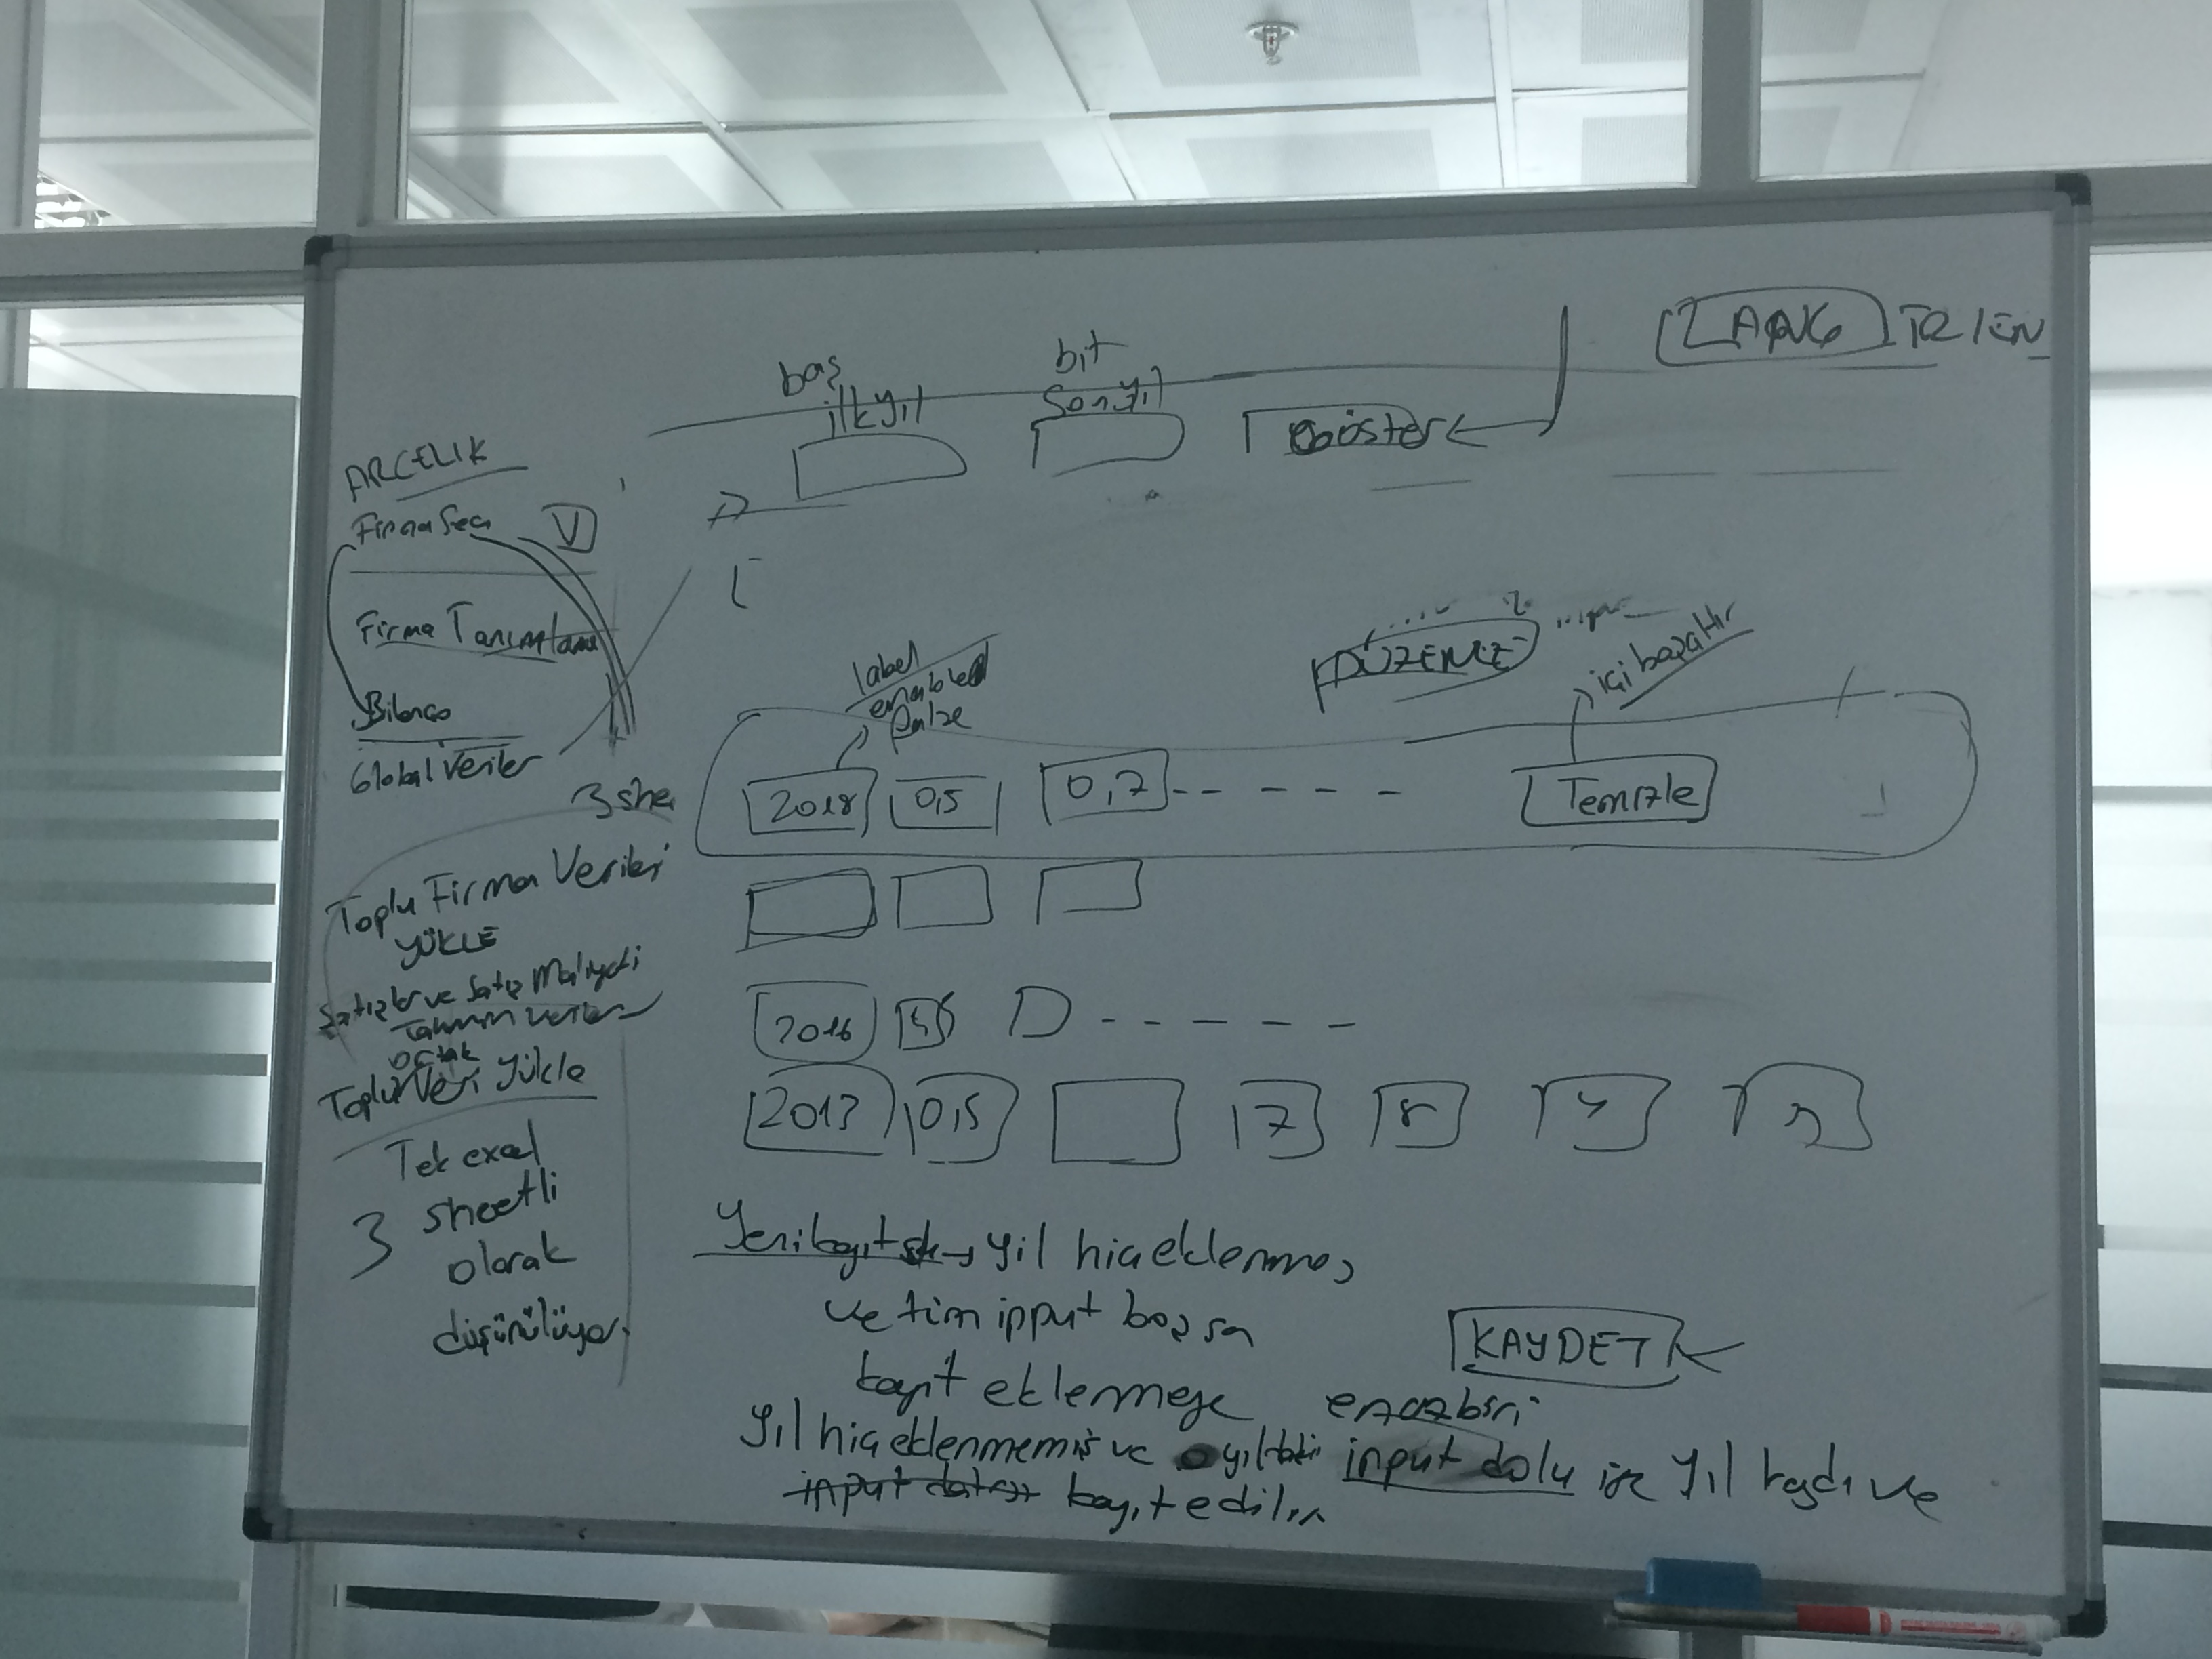 LANG TR/EN
baş
ilkyıl
bit
Sonyıl
Göster
ARCELIK
Firma Seç
V
Firma Tanımlama
Bilanço
Global Veriler
3 she
Toplu Firma Verileri
YÜKLE
Satışlar ve Satış Maliyeti
Tahmin verileri
ortak
Toplu Veri Yükle
Tek excel
3 sheetli
olarak
düşünülüyor
label
enabled
false
DÜZENLE
içi boşaltır
2018 0,5 0,7 - - - - - Temizle
2016
2013 0,5 7 8
Yeni kayıtsa → yıl hiç eklenmemiş
ve tüm input boşsa
kayıt eklenmeye
KAYDET
en az biri
Yıl hiç eklenmemiş ve o yıldaki input dolu ise yıl kaydı ve
kayıt edilir